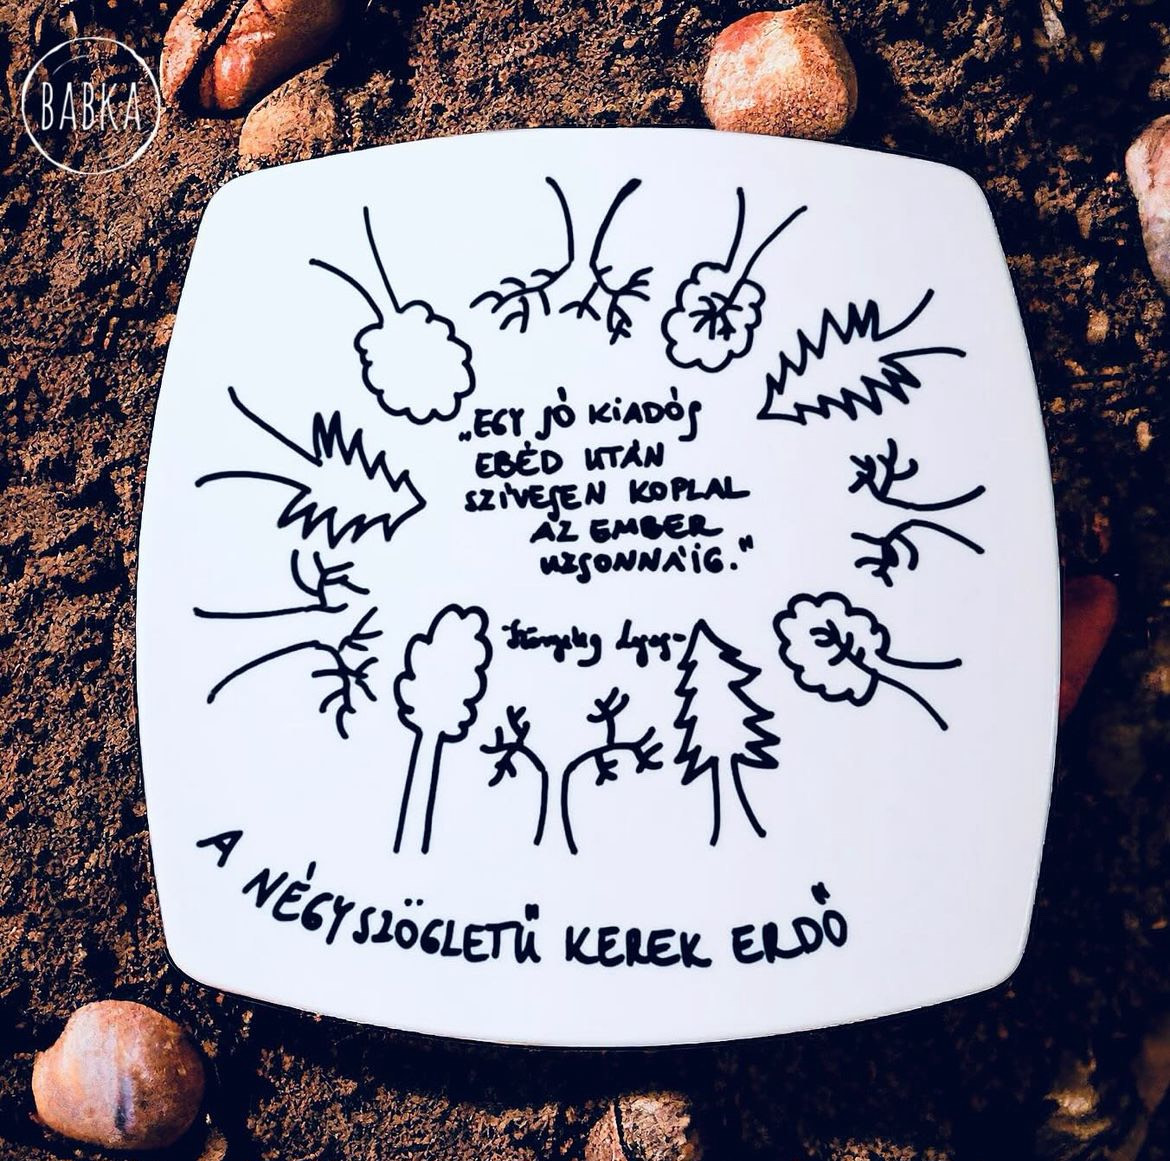 BABKA
„EGY JÓ KIADÓS
EBÉD UTÁN
SZÍVESEN KOPLAL
AZ EMBER
UZSONNÁIG."
A NÉGYSZÖGLETŰ KEREK ERDŐ